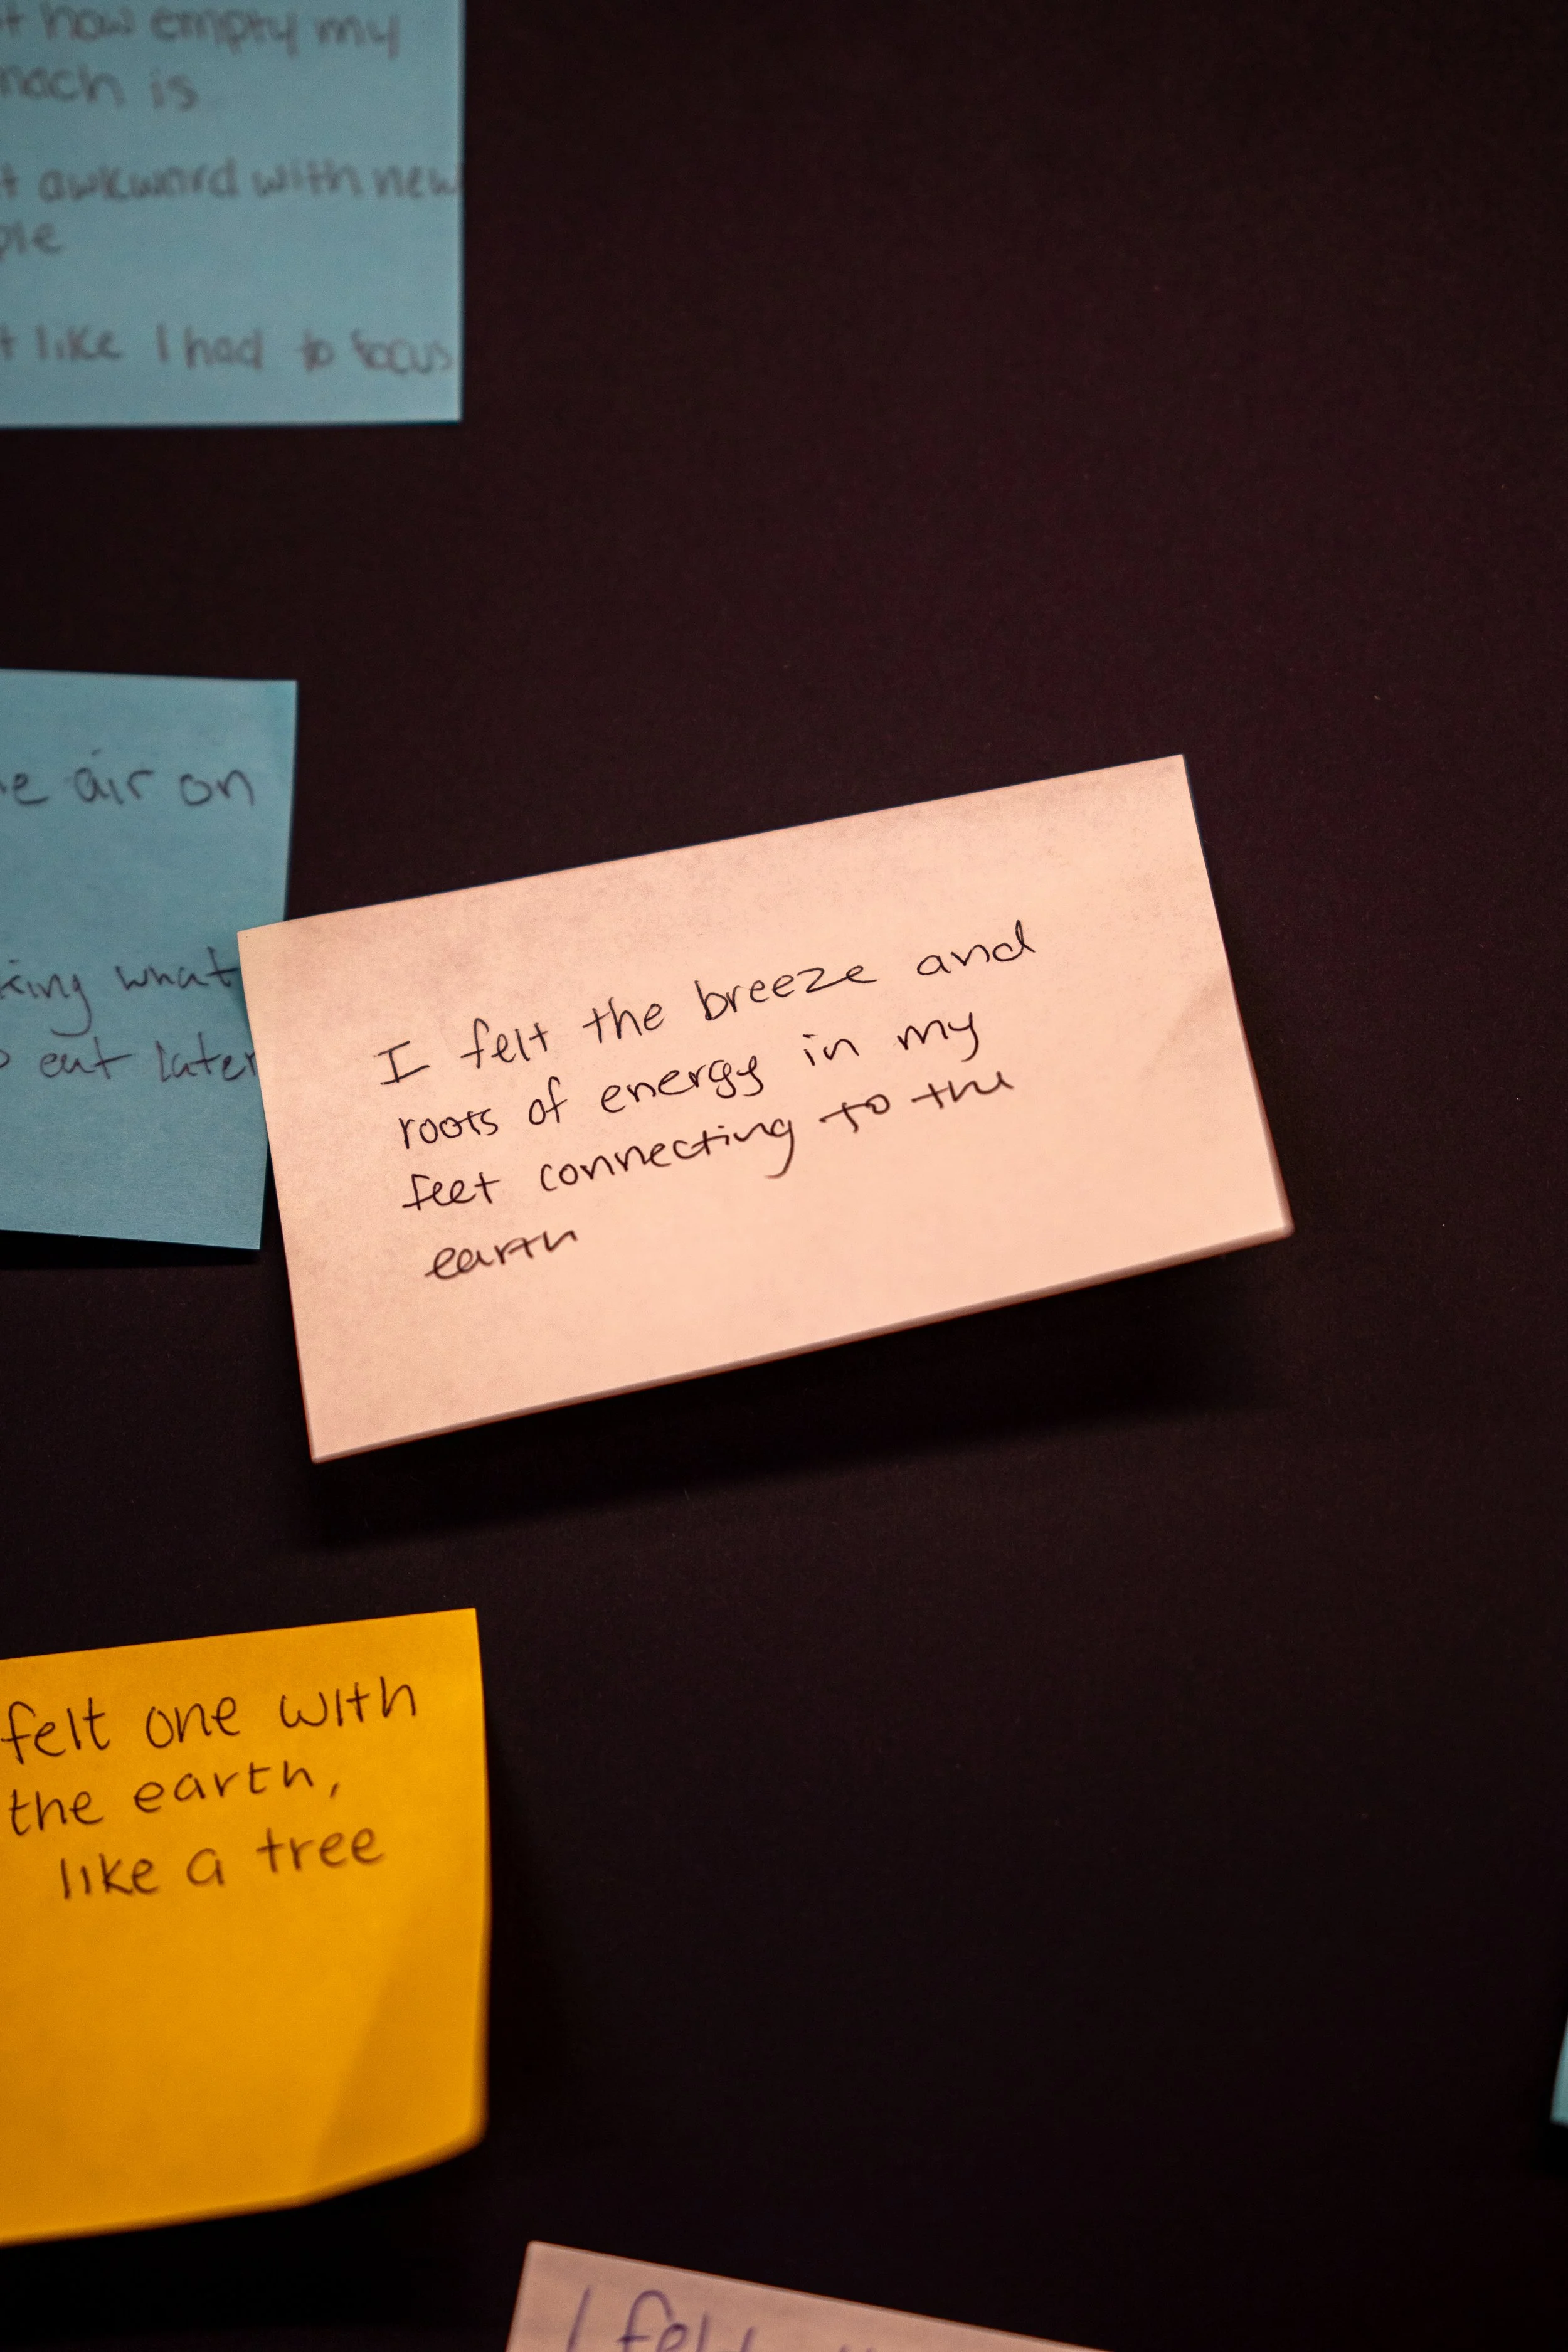 how empty my
is
awkward with new
like I had to focus
air on
what
eat later
I felt the breeze and
roots of energy in my
feet connecting to the
earth
felt one with
the earth,
like a tree
I felt